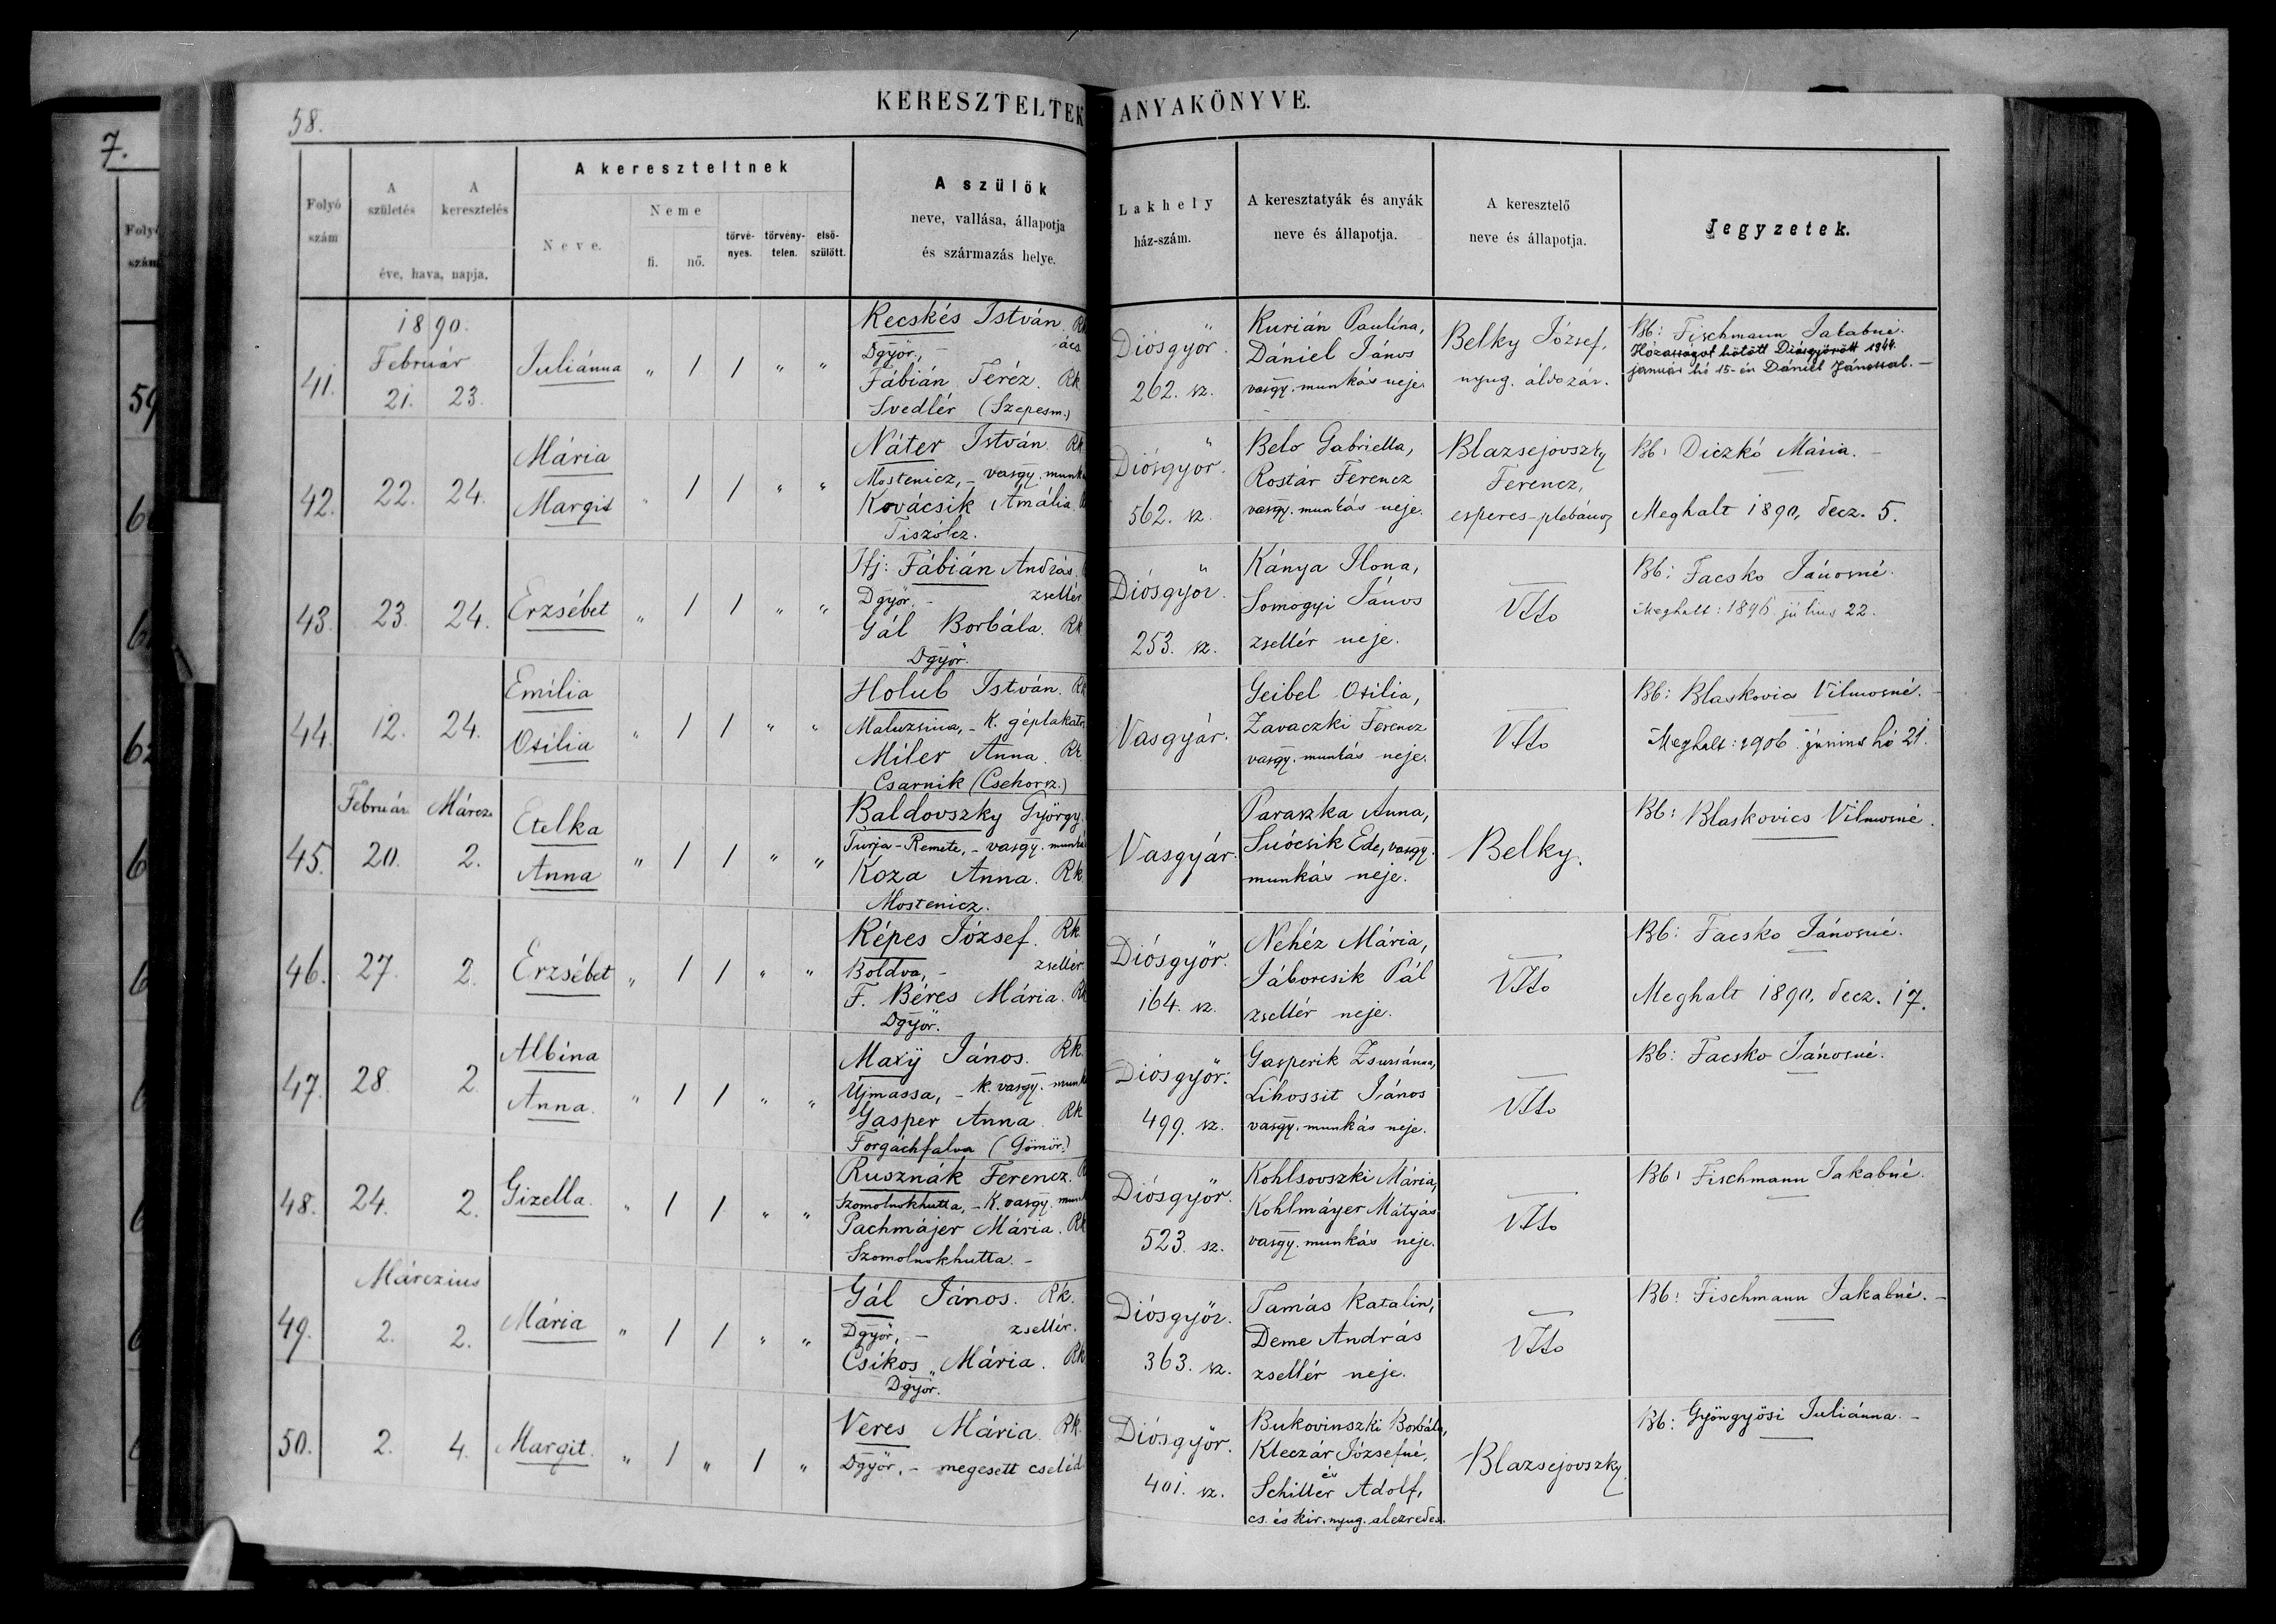 58.
KERESZTELTEK ANYAKÖNYVE.
7.
Folyó szám
A születés
A keresztelés
éve, hava, napja.
A kereszteltnek
Neve.
Neme
fi.
nő.
törvé-nyes.
törvény-telen.
első-szülött.
A szülök
neve, vallása, állapotja
és származás helye.
Lakhely
ház-szám.
A keresztatyák és anyák
neve és állapotja.
A keresztelő
neve és állapotja.
Jegyzetek.
1890.
Február
41. 21. 23. Juliánna " / / " "
Kecskés István. Rk
Dgyőr, – ács
Fábián Teréz. Rk
Svedlér (Szepesm.)
Diósgyőr.
262. sz.
Kurián Paulína,
Dániel János
vasgy. munkás neje.
Belky József,
nyug. áldozár.
Bb: Fischmann Jakabné.
Házasságot kötött Diósgyőrött 1944.
január hó 15-én Dániel Jánossal. –
42. 22. 24.
Mária
Margit " / / " "
Náter István. Rk
Mostenicz, – vasgy. munká
Kovácsik Amália.
Tiszólcz.
Diósgyőr.
562. sz.
Belo Gabriella,
Rostár Ferencz
vasgy. munkás neje.
Blazsejovszky
Ferencz,
esperes-plebános
Bb: Diczkó Mária. –
Meghalt 1890, decz. 5.
43. 23. 24. Erzsébet " / / " "
Ifj: Fábián András.
Dgyőr. – zsellér
Gál Borbála. Rk
Dgyőr.
Diósgyőr.
253. sz.
Kánya Ilona,
Somogyi János
zsellér neje.
Vtto
Bb: Facsko Jánosné.
Meghalt: 1896 július 22.
44. 12. 24.
Emília
Otilia " / / " "
Holub István. Rk
Maluzsina, – k. géplakats
Miler Anna. Rk
Csarnik (Csehorsz.)
Vasgyár.
Geibel Otilia,
Zavaczki Ferencz
vasgy. munkás neje.
Vtto
Bb: Blaskovics Vilmosné. –
Meghalt: 1906. június hó 21.
Február Márcz.
45. 20. 2.
Etelka
Anna " / / " "
Baldovszky György.
Turja-Remete, – vasgy. munká
Koza Anna. Rk.
Mostenicz.
Vasgyár.
Paraszka Anna,
Suócsik Ede, vasgy.
munkás neje.
Belky.
Bb: Blaskovics Vilmosné.
46. 27. 2. Erzsébet " / / " "
Képes József. Rk.
Boldva, – zsellér.
F. Béres Mária. Rk
Dgyőr.
Diósgyőr.
164. sz.
Nehéz Mária,
Jáborcsik Pál
zsellér neje.
Vtto
Bb: Facsko Jánosné.
Meghalt 1890, decz. 17.
47. 28. 2.
Albína
Anna. " / / " "
Maxÿ János. Rk.
Ujmassa, – k. vasgy. munk
Gasper Anna. Rk
Forgáchfalva (Gömör.)
Diósgyőr.
499. sz.
Gasperik Zsuzsánna,
Lihossit János
vasgy. munkás neje.
Vtto
Bb: Facsko Jánosné.
48. 24. 2. Gizella. " / / " "
Rusznák Ferencz.
Szomolnokhutta, – k. vasgy. munk
Pachmájer Mária. Rk
Szomolnokhutta. –
Diósgyőr.
523. sz.
Kohlsovszki Mária,
Kohlmáyer Mátyás
vasgy. munkás neje.
Vtto
Bb: Fischmann Jakabné.
Márczius
49. 2. 2. Mária " / / " "
Gál János. Rk.
Dgyőr, – zsellér.
Csíkos Mária. Rk
Dgyőr.
Diósgyőr.
363. sz.
Tamás Katalin,
Deme András
zsellér neje.
Vtto
Bb: Fischmann Jakabné. –
50. 2. 4. Margit. " / " / "
Veres Mária. Rk.
Dgyőr, – megesett cseléd
Diósgyőr.
401. sz.
Bukovinszki Borbála,
Kleczár Józsefné,
és
Schiller Adolf,
cs. és kir. nyug. alezredes.
Blazsejovszky
Bb: Gyöngyösi Juliánna. –